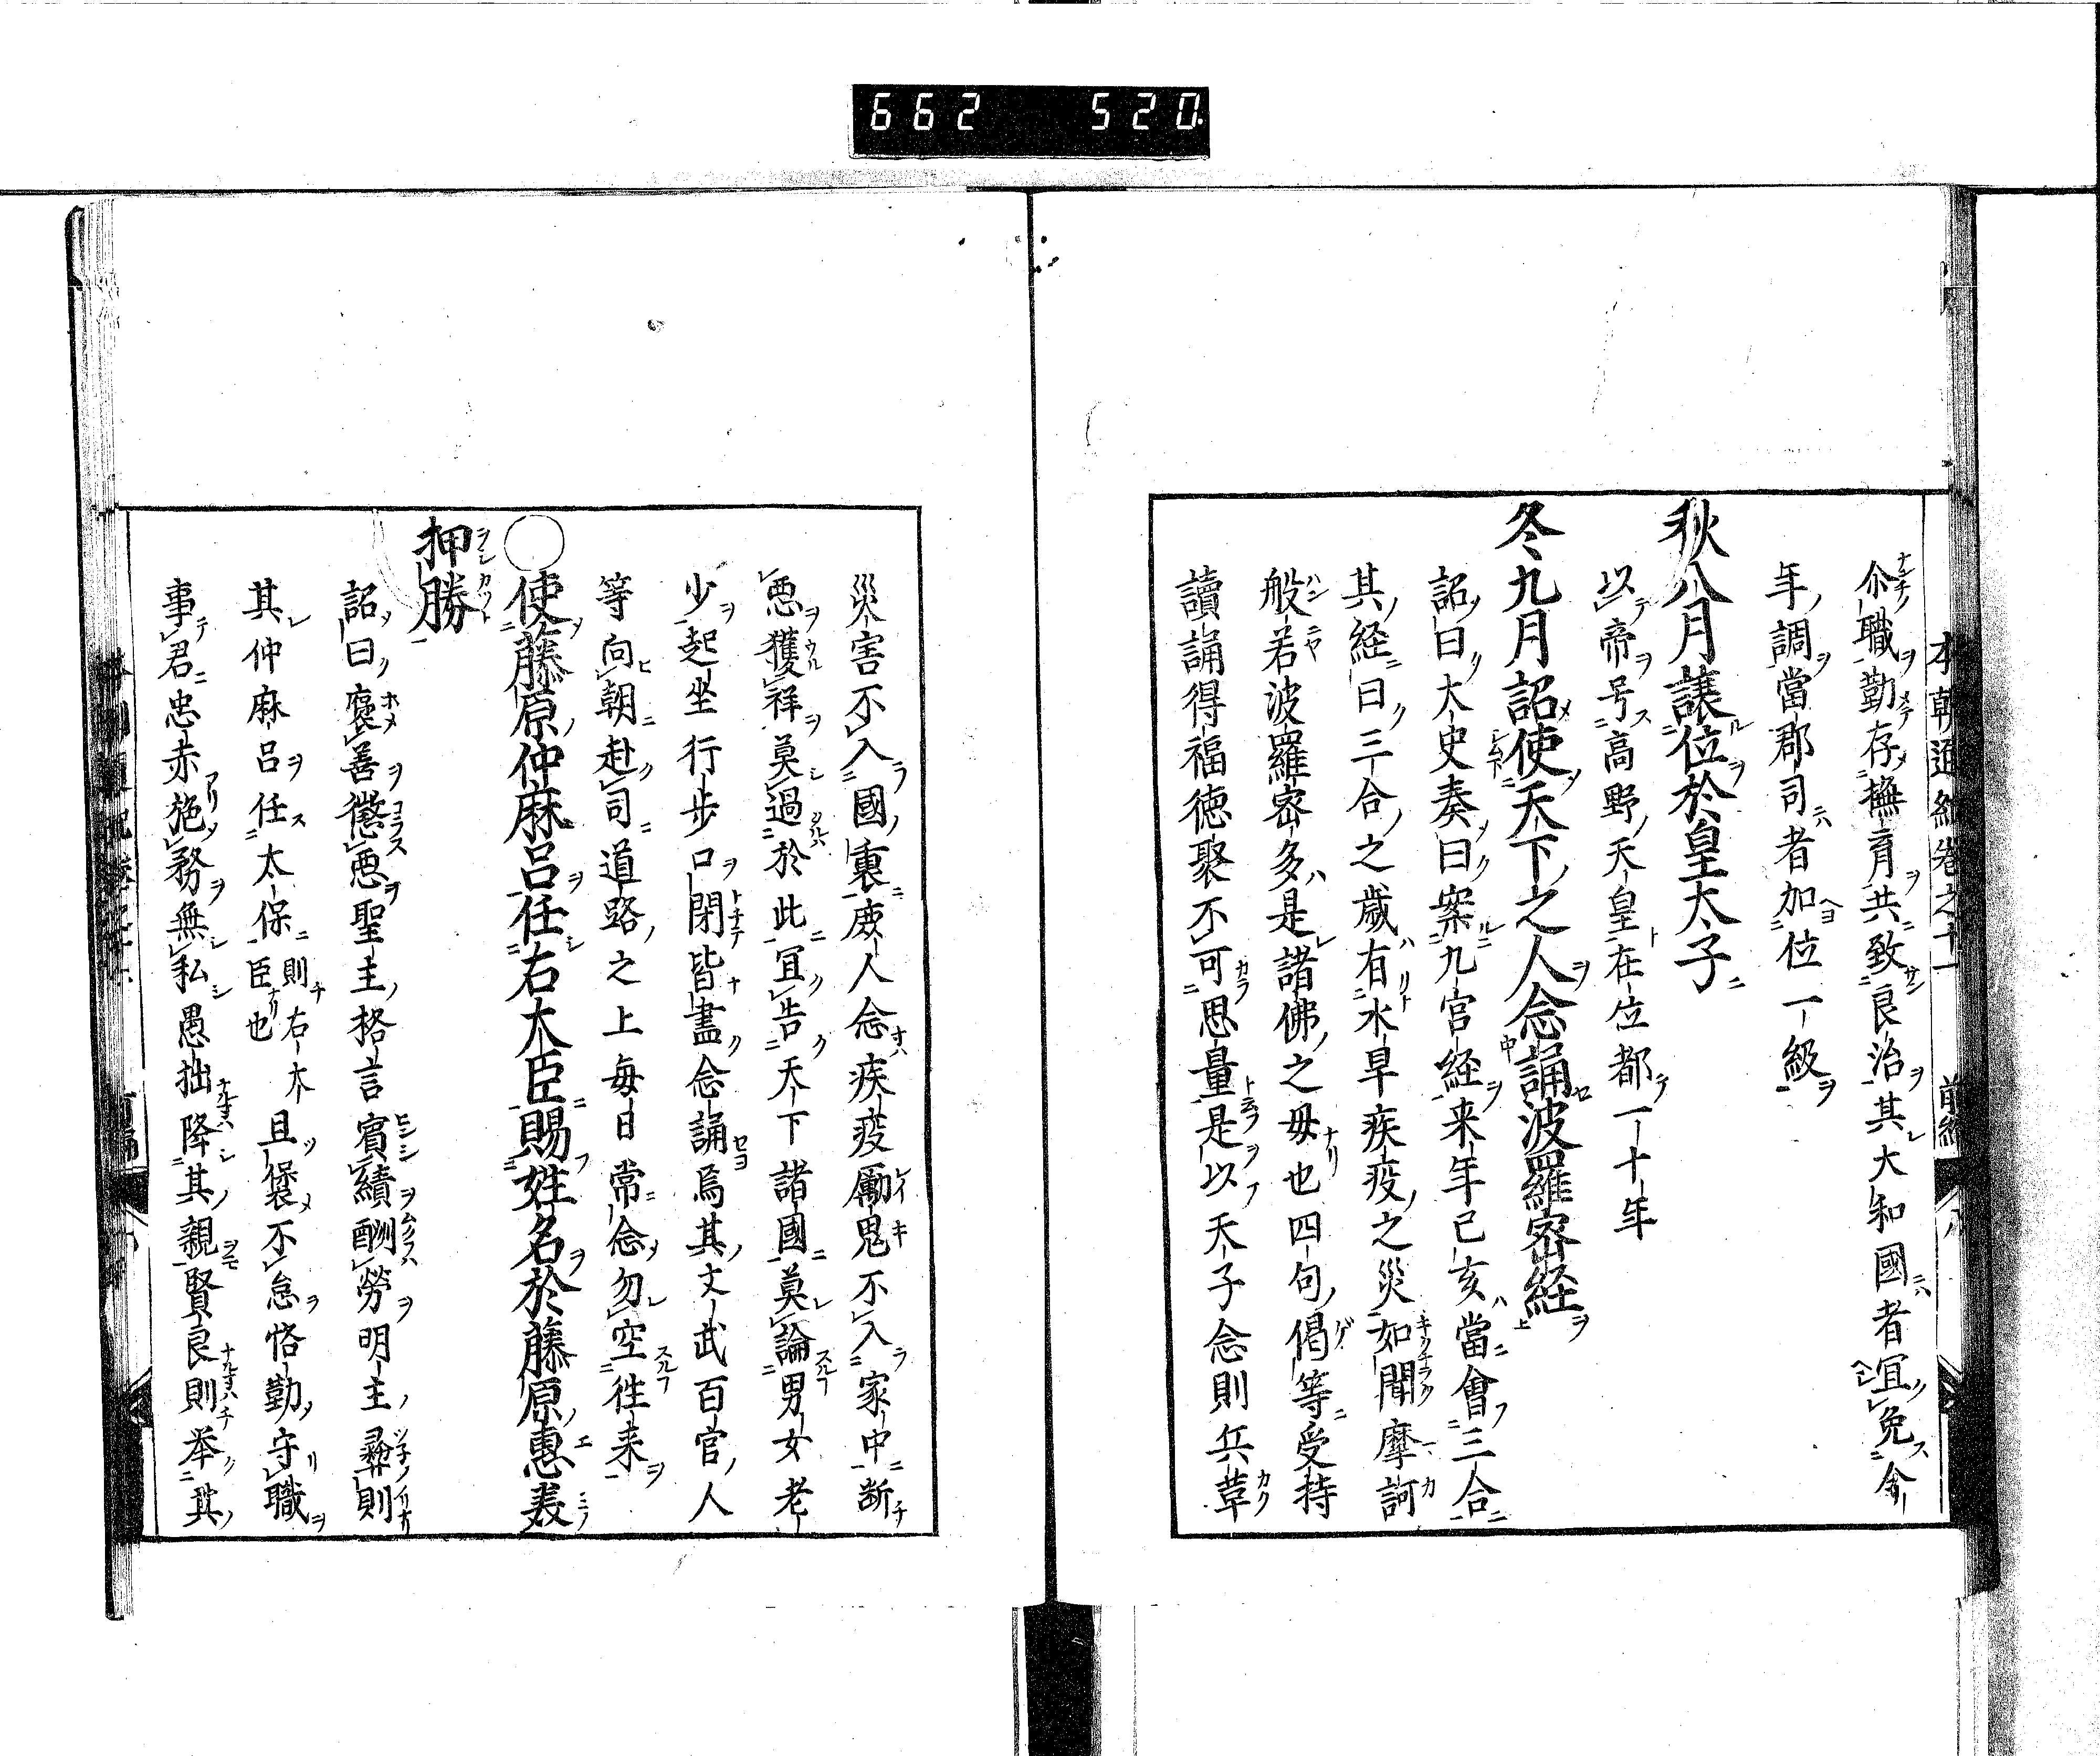 662 520
本朝通紀巻之十一 前編 八
尒職勤存撫育共致良治其大和國者宜免今
年調當郡司者加位一級
秋八月譲位於皇太子
以帝号高野天皇在位都一十年
冬九月詔使天下之人念誦波羅密経
詔曰大史奏曰案九宮経来年己亥當會三合
其経曰三合之歳有水旱疾疫之災如聞摩訶
般若波羅密多是諸佛之母也四句偈等受持
讀誦得福徳聚不可思量是以天子念則兵革
災害不入國裏庶人念疾疫厲鬼不入家中断
悪獲祥莫過於此宜告天下諸國莫論男女老
少起坐行歩口閉皆盡念誦焉其文武百官人
等向朝赴司道路之上毎日常念勿空徃来
○使藤原仲麻呂任右大臣賜姓名於藤原恵美
押勝
詔曰褒善懲悪聖主格言賓績酬勞明主彛則
其仲麻呂任太保則右大臣也且〓不怠恪勤守職
事君忠赤施務無私愚拙降其親賢良則挙其